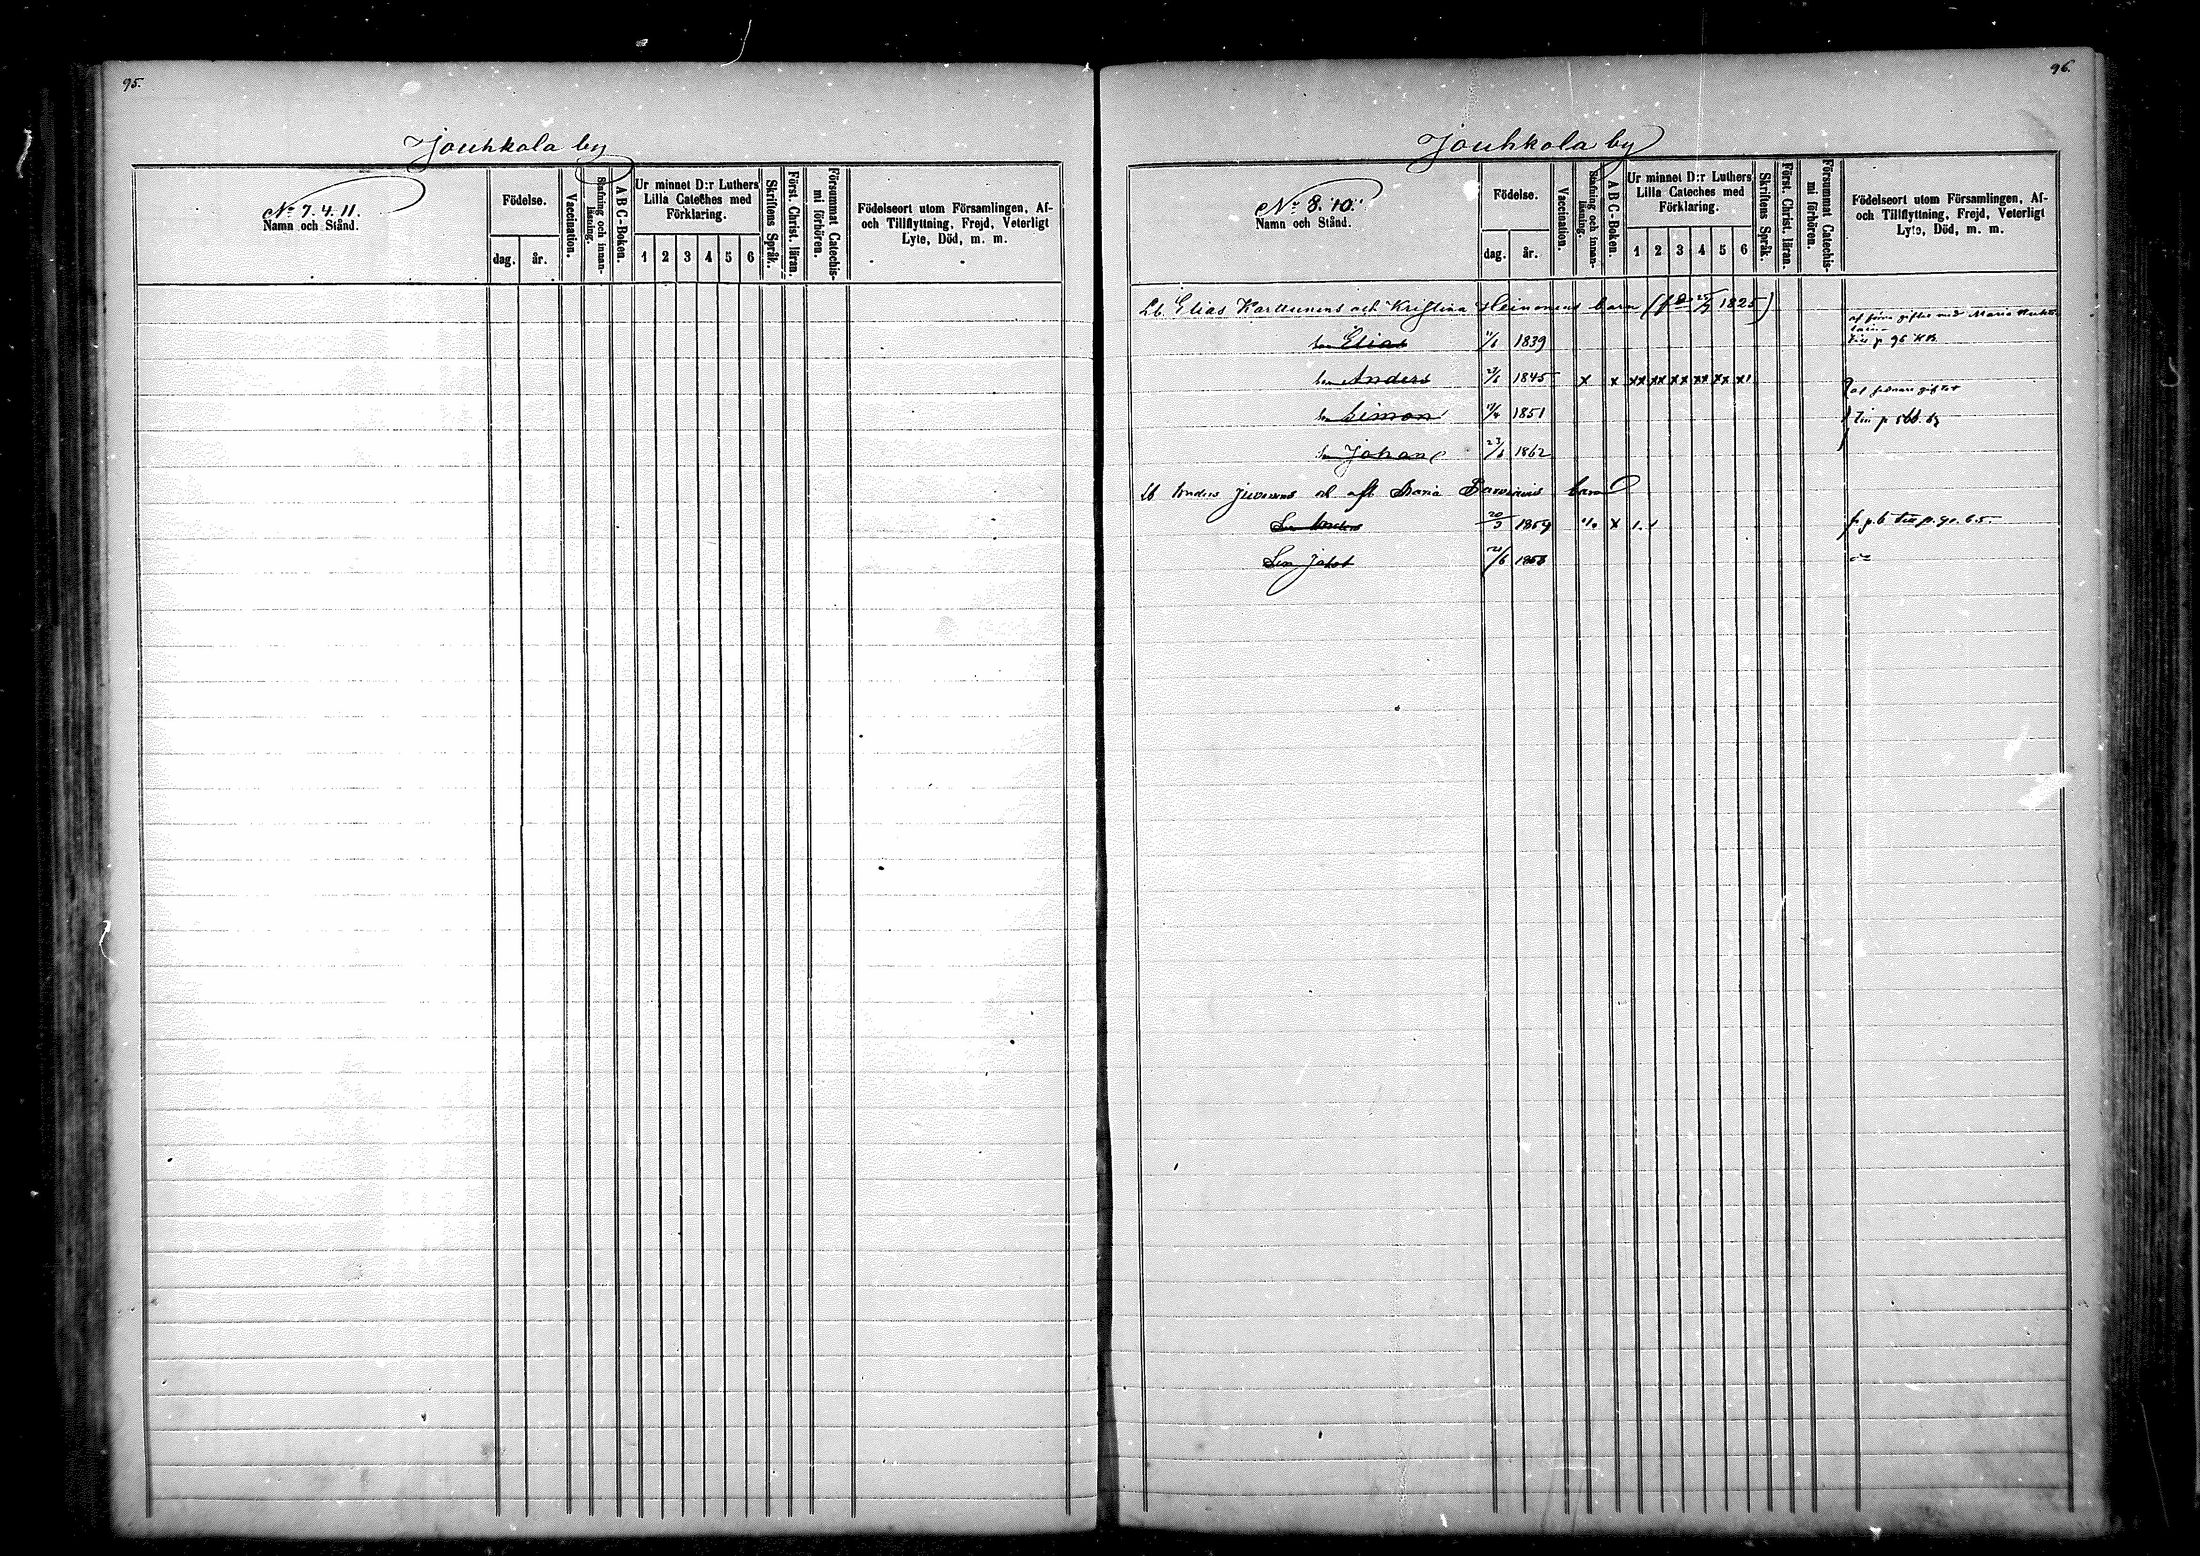 95.
Jouhkola by
No 7. 4. 11.
Namn och Stånd.
Födelse.
dag. år.
Vaccination.
Stafning och innan-
läsning.
A B C-Boken.
Ur minnet D:r Luthers
Lilla Cateches med
Förklaring.
1 2 3 4 5 6
Skriftens Språk.
Först. Christ. läran.
Försummat Catechis-
mi förhören.
Födelseort utom Församlingen, Af-
och Tillflyttning, Frejd, Veterligt
Lyte, Död, m. m.
96.
Jouhkola by
No 8. 10.
Namn och Stånd.
Födelse.
dag. år.
Vaccination.
Stafning och innan-
läsning.
A B C-Boken.
Ur minnet D:r Luthers
Lilla Cateches med
Förklaring.
1 2 3 4 5 6
Skriftens Språk.
Först. Christ. läran.
Försummat Catechis-
mi förhören.
Födelseort utom Församlingen, Af-
och Tillflyttning, Frejd, Veterligt
Lyte, Död, m. m.
Lb Elias Karttunens och Kristina Heinonens barn 1825)
giftes med Maria
Son Elias 1839 p 96
Son Anders 1845 x x xx xx xx xx xx x1
Son Simon 1851
Son Johan 23/6 1862
Lb Anders och Maria barn
Son Anders 20/3 1859 x 1. 1
Son Jakob